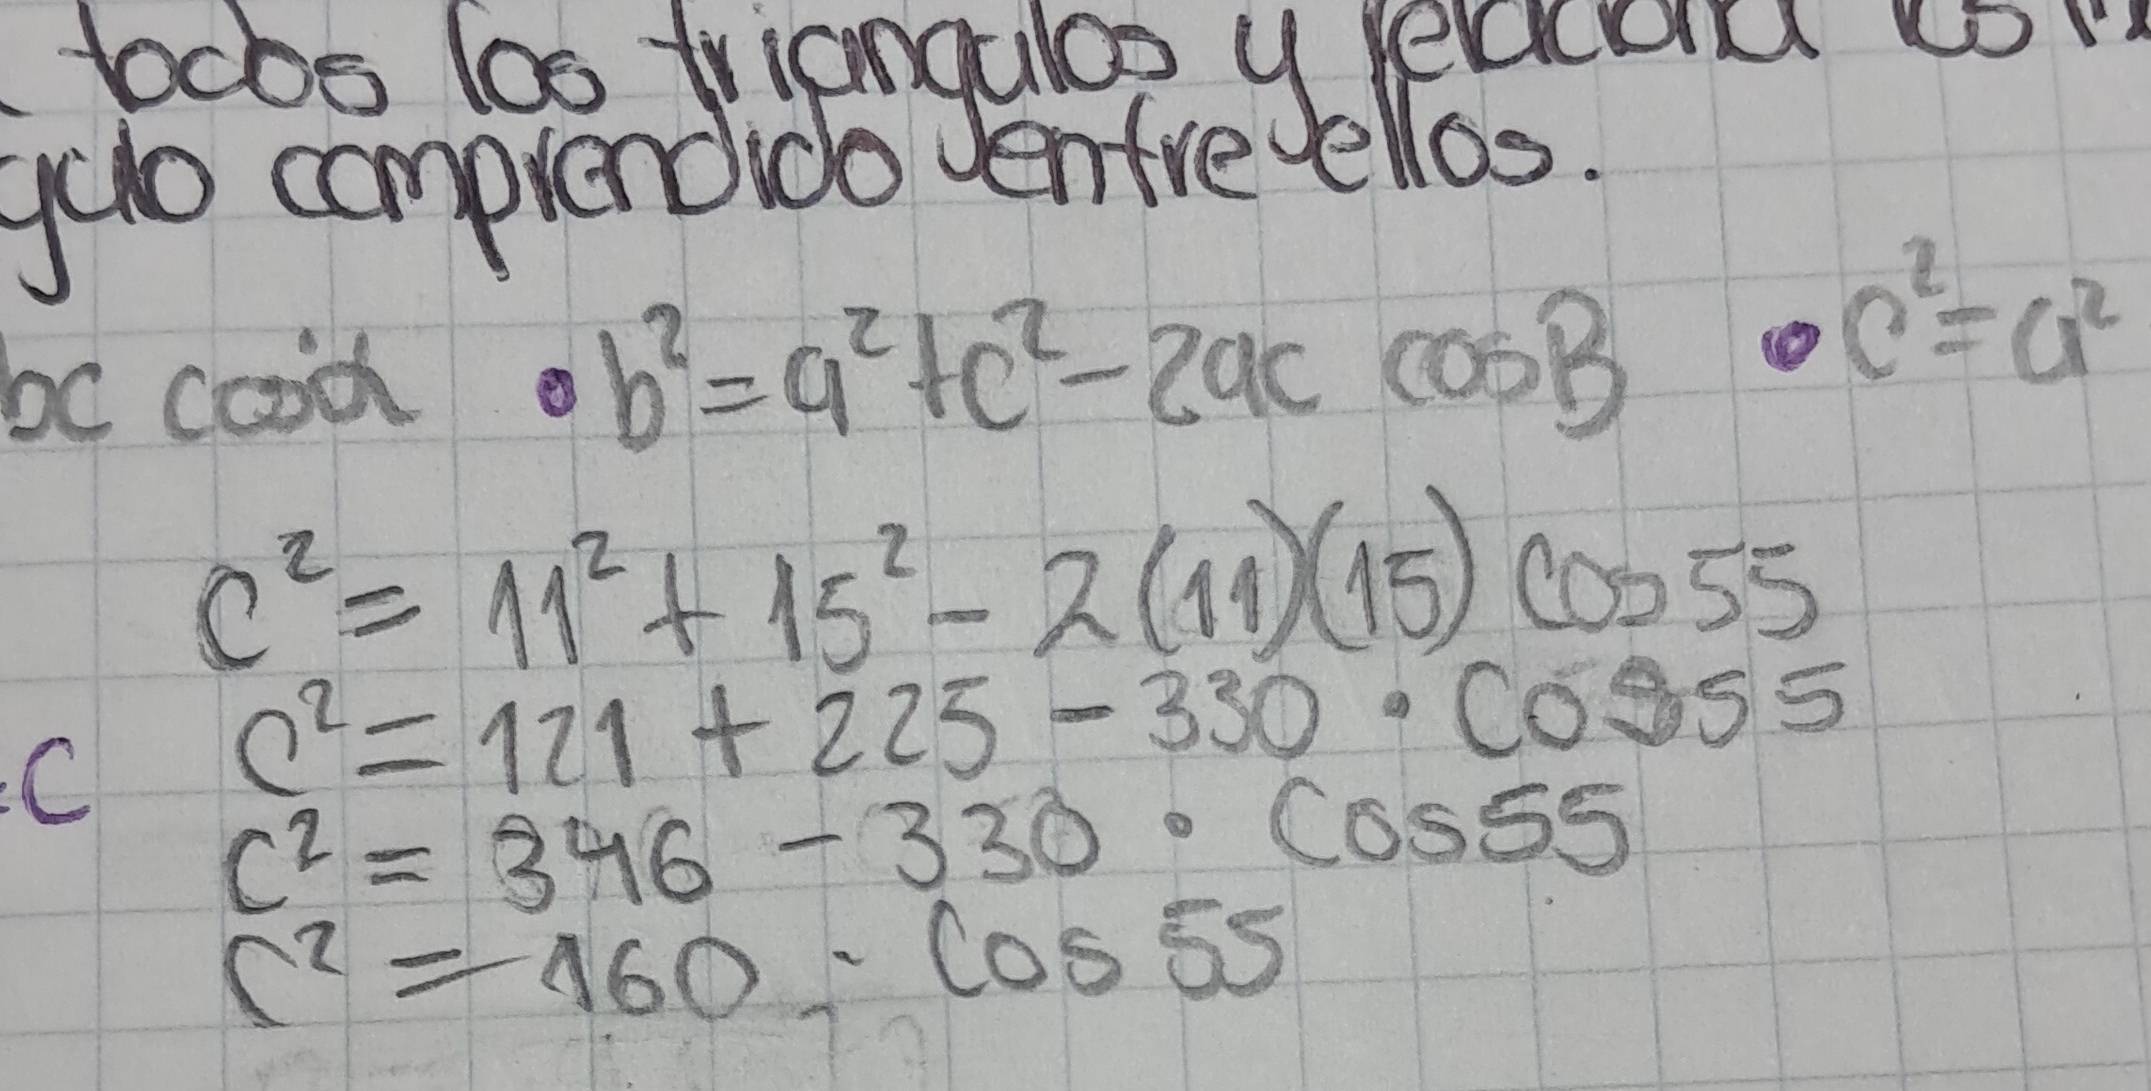 todos los triangulos y relaciona
gulo comprendido entre ellos.
bc cos α • b² = a² + c² - 2ac cos B • c² = a²
c² = 11² + 15² - 2(11)(15) cos 55
c² = 121 + 225 - 330 · Cos 55
C
c² = 346 - 330 · Cos 55
c² = -160 · Cos 55